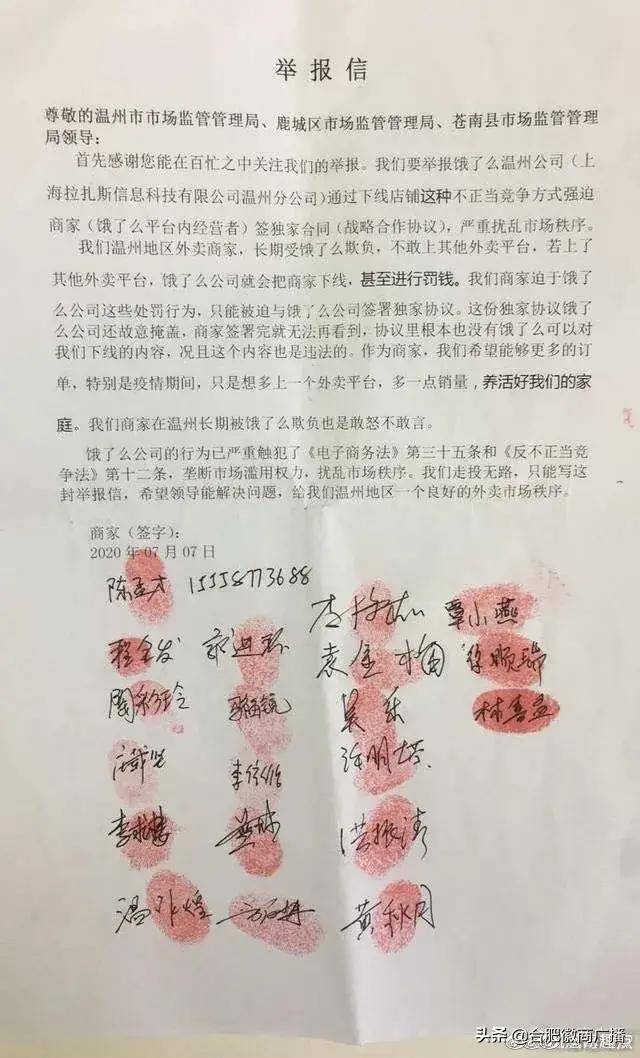 举报信
尊敬的温州市市场监管管理局、鹿城区市场监管管理局、苍南县市场监管管理
局领导：
首先感谢您能在百忙之中关注我们的举报。我们要举报饿了么温州公司（上
海拉扎斯信息科技有限公司温州分公司）通过下线店铺这种不正当竞争方式强迫
商家（饿了么平台内经营者）签独家合同（战略合作协议），严重扰乱市场秩序。
我们温州地区外卖商家，长期受饿了么欺负，不敢上其他外卖平台，若上了
其他外卖平台，饿了么公司就会把商家下线，甚至进行罚钱。我们商家迫于饿了
么公司这些处罚行为，只能被迫与饿了么公司签署独家协议。这份独家协议饿了
么公司还故意掩盖，商家签署完就无法再看到，协议里根本也没有饿了么可以对
我们下线的内容，况且这个内容也是违法的。作为商家，我们希望能够更多的订
单，特别是疫情期间，只是想多上一个外卖平台，多一点销量，养活好我们的家
庭。我们商家在温州长期被饿了么欺负也是敢怒不敢言。
饿了么公司的行为已严重触犯了《电子商务法》第三十五条和《反不正当竞
争法》第十二条，垄断市场滥用权力，扰乱市场秩序。我们走投无路，只能写这
封举报信，希望领导能解决问题，给我们温州地区一个良好的外卖市场秩序。
商家（签字）：
2020 年 07 月 07 日
15558773688 覃小燕
袁金梅
吴乐
黄秋月
头条 @合肥徽商广播